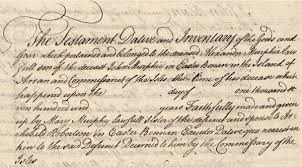 The Testament Dative and Inventary of the Goods and
Gear which pertained and belonged to the deceased Alexander Murphie Law
full son of the deceast John Murphie in Easter Bennan in the Island of
Arran and Commissariot of the Isles the time of his decease which
happened upon the day of one thousand
seven hundred and years Faithfully made and given
up by Mary Murphie Lawfull Sister of the defunct and Spouse to Ar
chibald Robertson in Easter Bennan Executor Dative qua nearest in
kin to the said Defunct Decerned to him by the Commissary of the
Isles